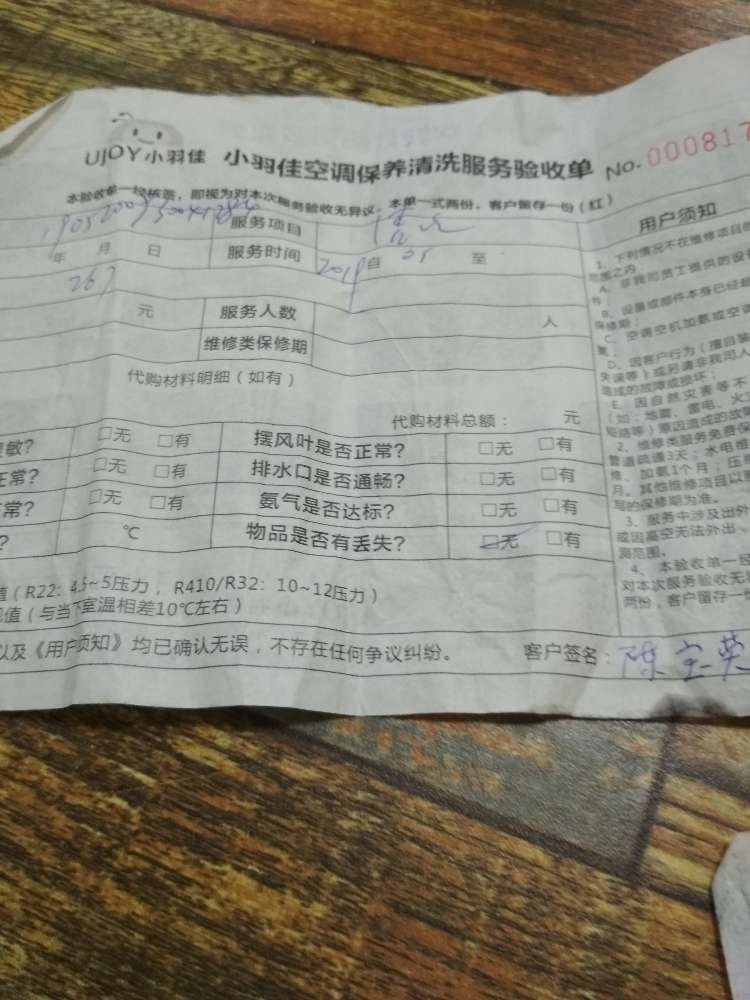 UJOY小羽佳 小羽佳空调保养清洗服务验收单 No.000817
本验收单一经核签，即视为对本次服务验收无异议，本单一式两份，客户留存一份（红）
服务项目 清洗
年 月 日 服务时间 2019 自 05 至
267 元 服务人数 人
维修类保修期
代购材料明细（如有）
代购材料总额： 元
敏？ □无 □有 摆风叶是否正常？ □无 □有
正常？ □无 □有 排水口是否通畅？ □无 □有
常？ □无 □有 氨气是否达标？ □无 □有
？ ℃ 物品是否有丢失？ □无 □有
值（R22：4.5~5压力，R410/R32：10~12压力）
值（与当下室温相差10℃左右）
以及《用户须知》均已确认无误，不存在任何争议纠纷。 客户签名：陈宝英
用户须知
1、下列情况不在维修项目的
范围之内
A、非我司员工提供的设备
件
B、设备或部件本身已经超
保修期；
C、空调空机加氨或空调
D、因客户行为（擅自装
失误等）或另请非我司人
造成的故障或损坏；
E、因自然灾害等不
（如：地震、雷电、火
短路等）原因造成的故
2、维修类服务免费保
管道疏通3天；水电维
修、加氨1个月；压
月。其他维修项目以
写的保修期为准。
3、服务中涉及出外
或因高空无法外出、
测范围。
4、本验收单一经
对本次服务验收无
两份，客户留存一份